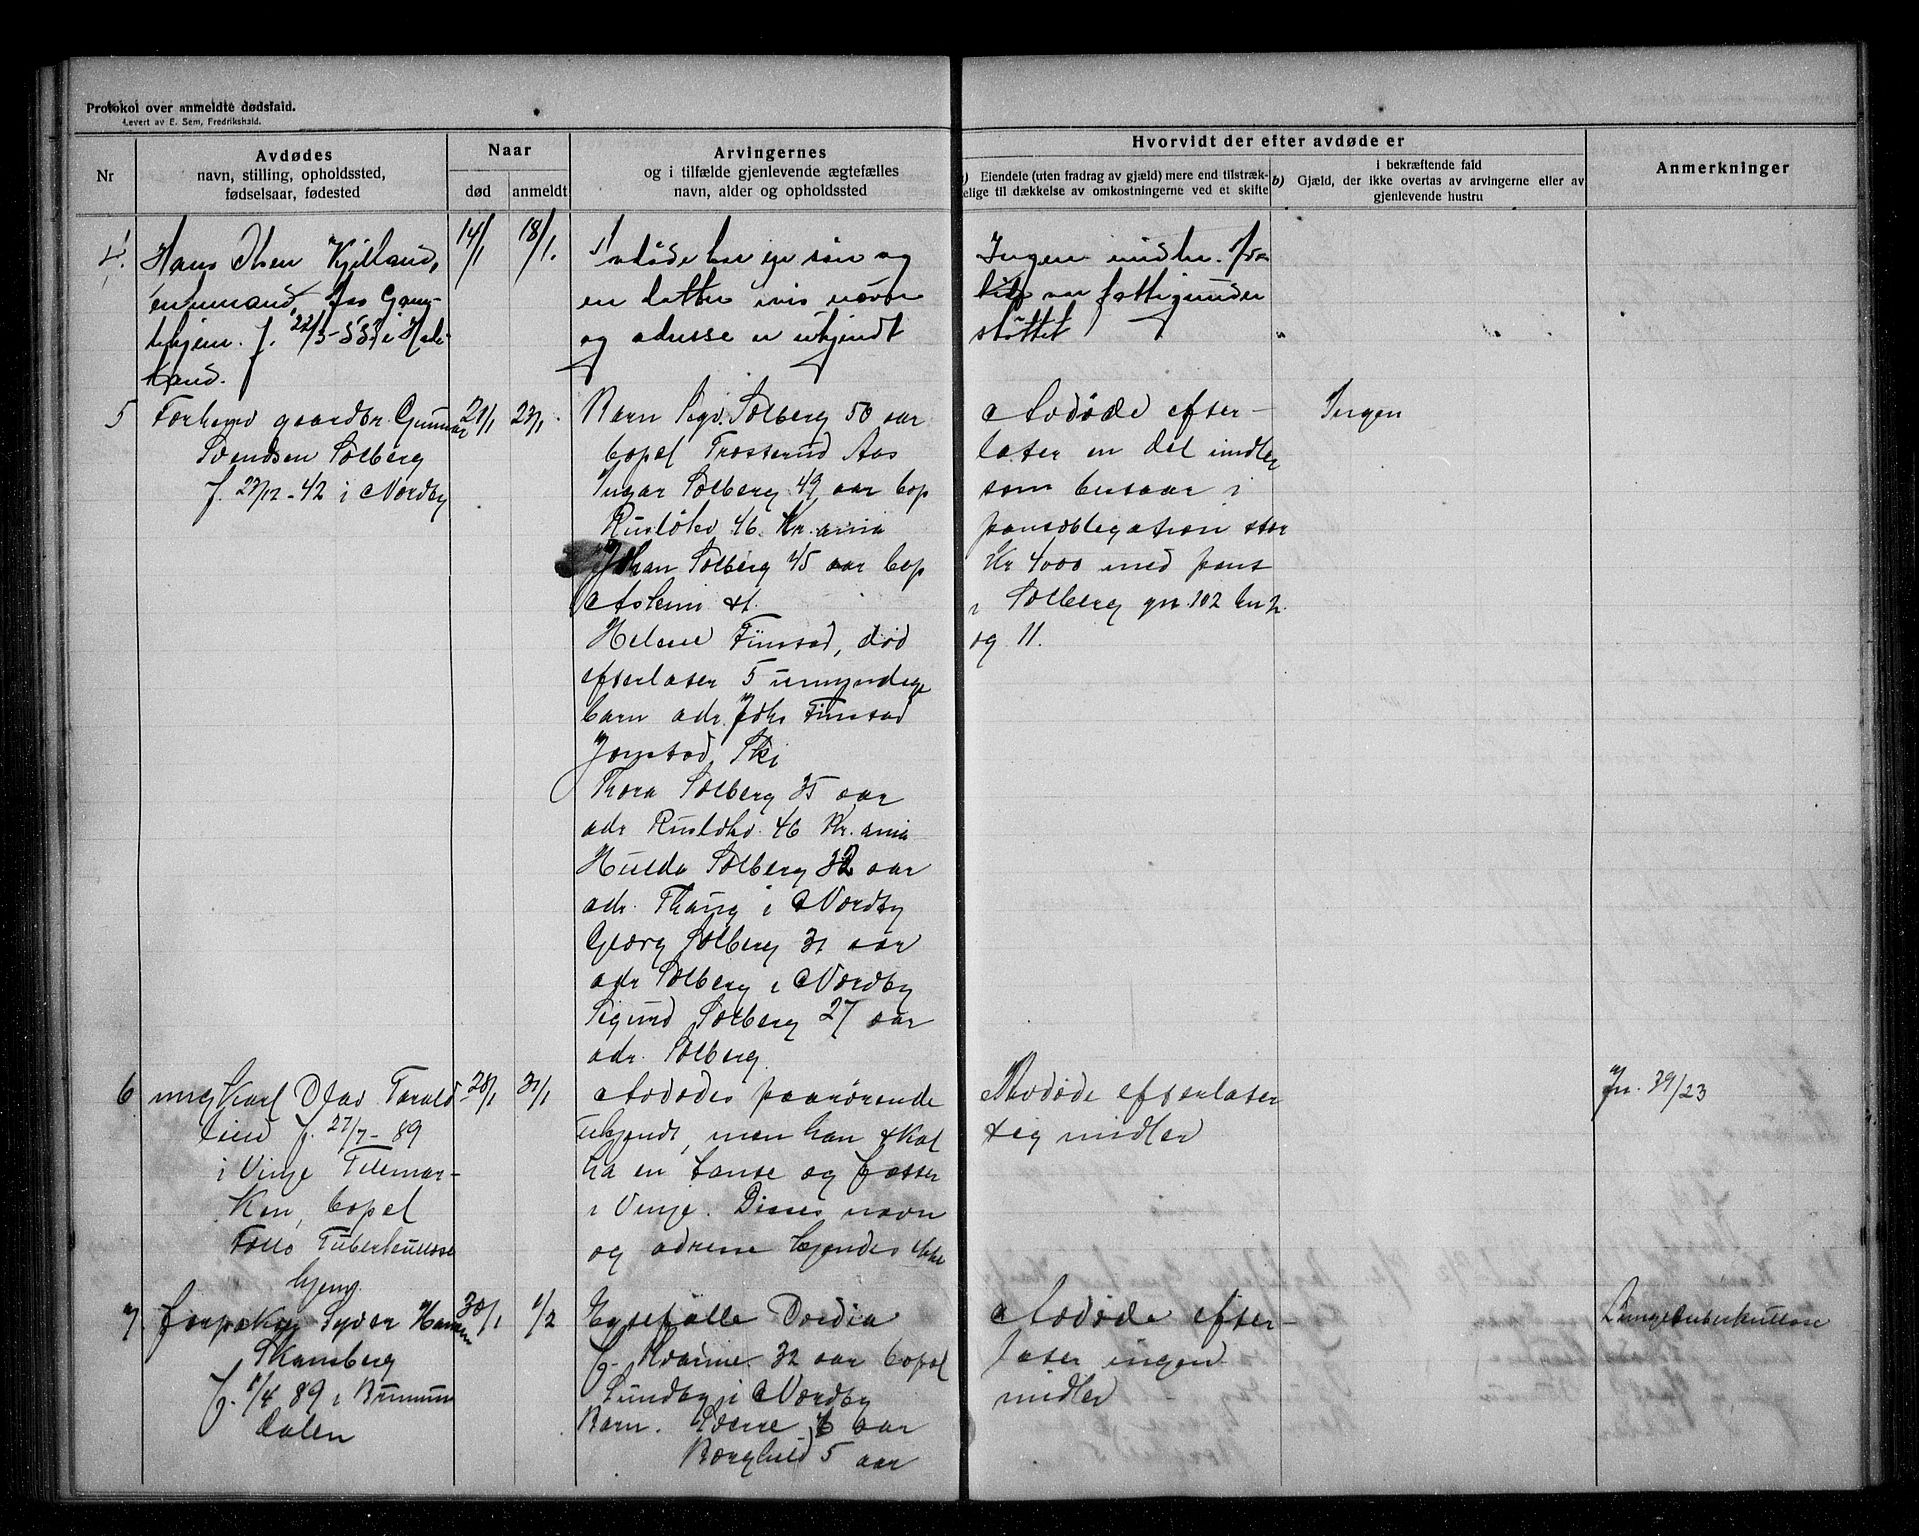 Protokol over anmeldte dødsfald.
Levert av E. Sem, Fredrikshald.
Nr
Avdødes
navn, stilling, opholdssted,
fødselsaar, fødested
Naar
død
anmeldt
Arvingernes
og i tilfælde gjenlevende ægtefælles
navn, alder og opholdssted
Hvorvidt der efter avdøde er
a) Eiendele (uten fradrag av gjæld) mere end tilstræk-
kelige til dækkelse av omkostningerne ved et skifte
i bekræftende fald
b) Gjæld, der ikke overtas av arvingerne eller av
gjenlevende hustru
Anmerkninger
4.
Hans Olsen Kjilland,
enkemand, Aas Gam-
lehjem. f. 22/3-53 i
land.
14/1
18/1.
Avdøde har en søn og
en datter hvis navn
og adresse er ukjendt
Ingen midler. Avdø
var fattigunder
støttet
"
5
Forhenv gaardbr. Gunnar
Svendsen Solberg
f. 23/12-42 i Nordby
21/1
23/1.
Barn Sigv. Solberg 50 aar
bopel Trosterud Aas
Ingar Solberg 49 aar bop
Rusløkv 46. Kr.ania
Johan Solberg 45 aar bop
Askim st.
Helene Finstad, død
efterlater 5 umyndige
barn adr. Johs Finstad
Ski
Thora Solberg 35 aar
adr Rusløkv. 46 Kr.ania
Hulda Solberg 32 aar
adr. Thaug i Nordby
Georg Solberg 31 aar
adr Solberg i Nordby
Sigurd Solberg 27 aar
adr. Solberg.
Avdøde efter-
later en del midler
som bestaar i
pantobligation stor
Kr 4000 med pant
i Solberg gn 102 bn 2
og 11.
Ingen
6
ung Karl Olav Tarald
lien f. 27/7-89
i Vinje Telemar-
ken, bopel
Follo Tuberkulose
hjem.
28/1
31/1
Avdødes paarørende
ukjendt, men han skal
ha en tante og faster
i Vinje. Disses navn
og adresse kjendes ikke
Avdøde efterlater
sig midler
Jn. 39/23
7.
forpakter Syver Hansen
Skansberg
f. 1/4 89 i Brumun
dalen
30/1
1/2
Egtefælle Dordia
f. Kværne. 32 aar bopel
Sundby i Nordby
Barn. Sverre 6 aar
Borghild 5 aar
Avdøde efter-
later ingen
midler
Lungetuberkulose